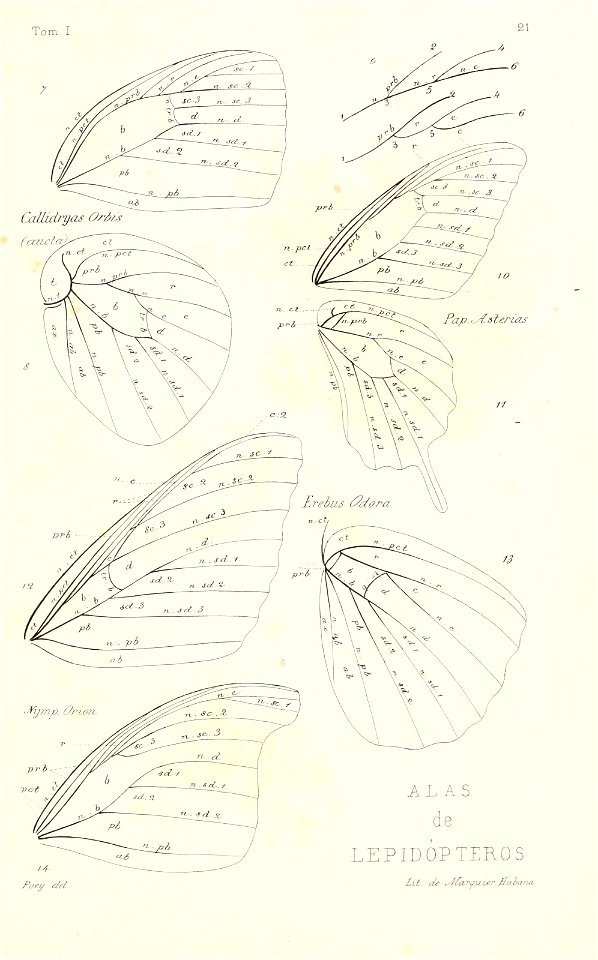 Tom. I.
21
7
n. ct
n. pct
ct
n. prb
r
n. r
n. c
sc. 1
n. sc. 2
sc. 3
n. sc. 3
tr b
d
n. d
b
sd. 1
n. sd. 1
n. b
sd. 2
n. sd. 2
pb
n. pb
ab
Callidryas Orbis
(aucta)
6
2
4
prb
r
n. c
6
n
3
5
1
2
4
prb
r
c
6
3
5
c
1
r
n. sc. 1
n. sc. 2
sc. 3
n. sc. 3
prb
n. ct
n. prb
tr. b
d
n. d
b
n. sd. 1
n. pct
n. sd. 2
n. b
sd. 3
ct
n. sd. 3
pb
n. pb
ab
10
8
n. ct
ct
n. pct
t
prb
n. prb
r
n. r
b
n. b
c
c
tr. b
d
n. d
pb
ax
n. ab
ab
n. pb
sd. 2
sd. 1
n. sd. 1
n. sd. 2
Pap. Asterias
n. ct
ct
n. pct
prb
n. prb
r
n. r
b
n. b
n. c
c
d
n. d
pb
n. pb
sd. 3
sd. 1
n. sd. 1
n. sd. 2
n. sd. 3
11
c. 2
n. sc. 1
n. c
sc. 2
n. sc. 2
r
n. sc. 3
prb
sc. 3
n. d
n. ct
c
d
n. sd. 1
12
n. pct
tr. b
sd. 2
b
n. sd. 2
n. b
sd. 3
n. sd. 3
ct
pb
n. pb
ab
Erebus Odora
n. ct
ct
n. pct
13
prb
r
b
n. r
n. b
d
c
n. c
n. ab
pb
n. d
sd. 1
n. sd. 1
ab
n. pb
sd. 2
n. sd. 2
Nymp. Orion
n. c
n. sc. 1
n. sc. 2
r
sc. 3
n. sc. 3
prb
n. d
pct
n. ct
b
sd. 1
n. sd. 1
sd. 2
n. b
n. sd. 2
pb
n. pb
ab
14
Poey del.
ALAS
de
LEPIDÓPTEROS
Lit. de Marquier Habana